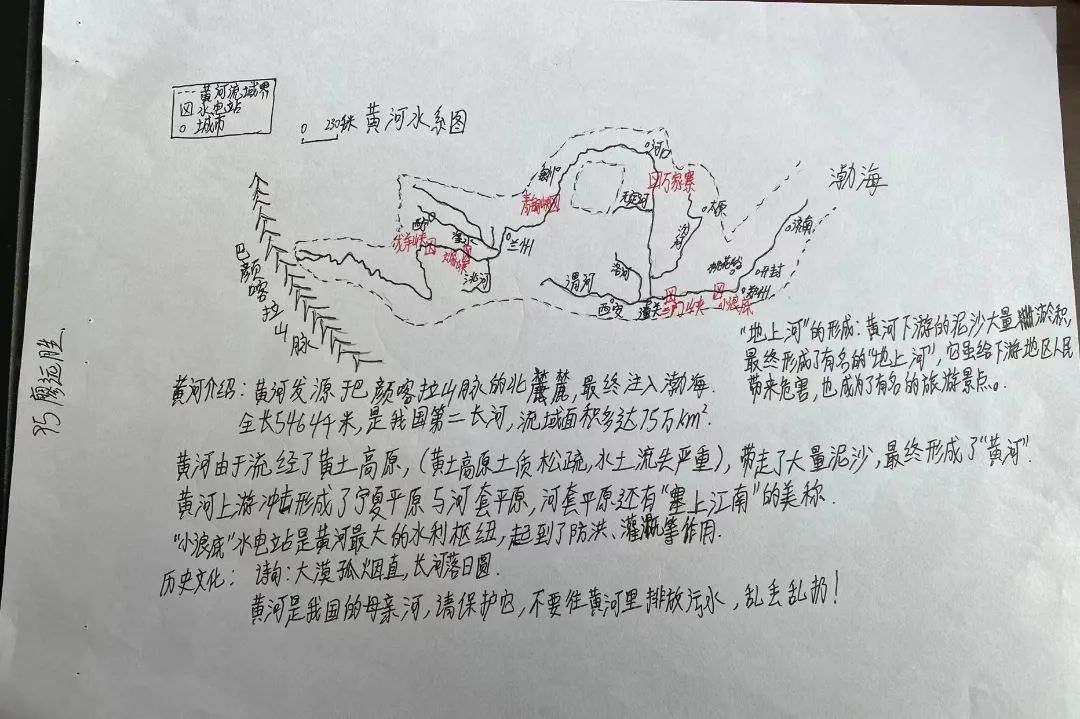 黄河流域界
水电站
城市
0 230千米 黄河水系图
渤海
河口
万家寨
青铜峡
无定河
太原
汾河
济南
西宁
湟水
兰州
洮河
渭河
洛河
桃花峪
开封
郑州
西安
潼关
三门峡
小浪底
巴颜喀拉山脉
"地上河"的形成:黄河下游的泥沙大量淤积,
最终形成了有名的"地上河",它虽给下游地区人民
带来危害,也成为了有名的旅游景点。
黄河介绍:黄河发源于巴颜喀拉山脉的北麓,最终注入渤海.
全长5464千米,是我国第二长河,流域面积多达75万km².
黄河由于流经了黄土高原,(黄土高原土质松疏,水土流失严重),带走了大量泥沙,最终形成了"黄河".
黄河上游冲击形成了宁夏平原与河套平原,河套平原还有"塞上江南"的美称.
"小浪底"水电站是黄河最大的水利枢纽,起到了防洪、灌溉等作用.
历史文化: 诗句:大漠孤烟直,长河落日圆.
黄河是我国的母亲河,请保护它,不要往黄河里排放污水,乱丢乱扔!
95 廖运胜